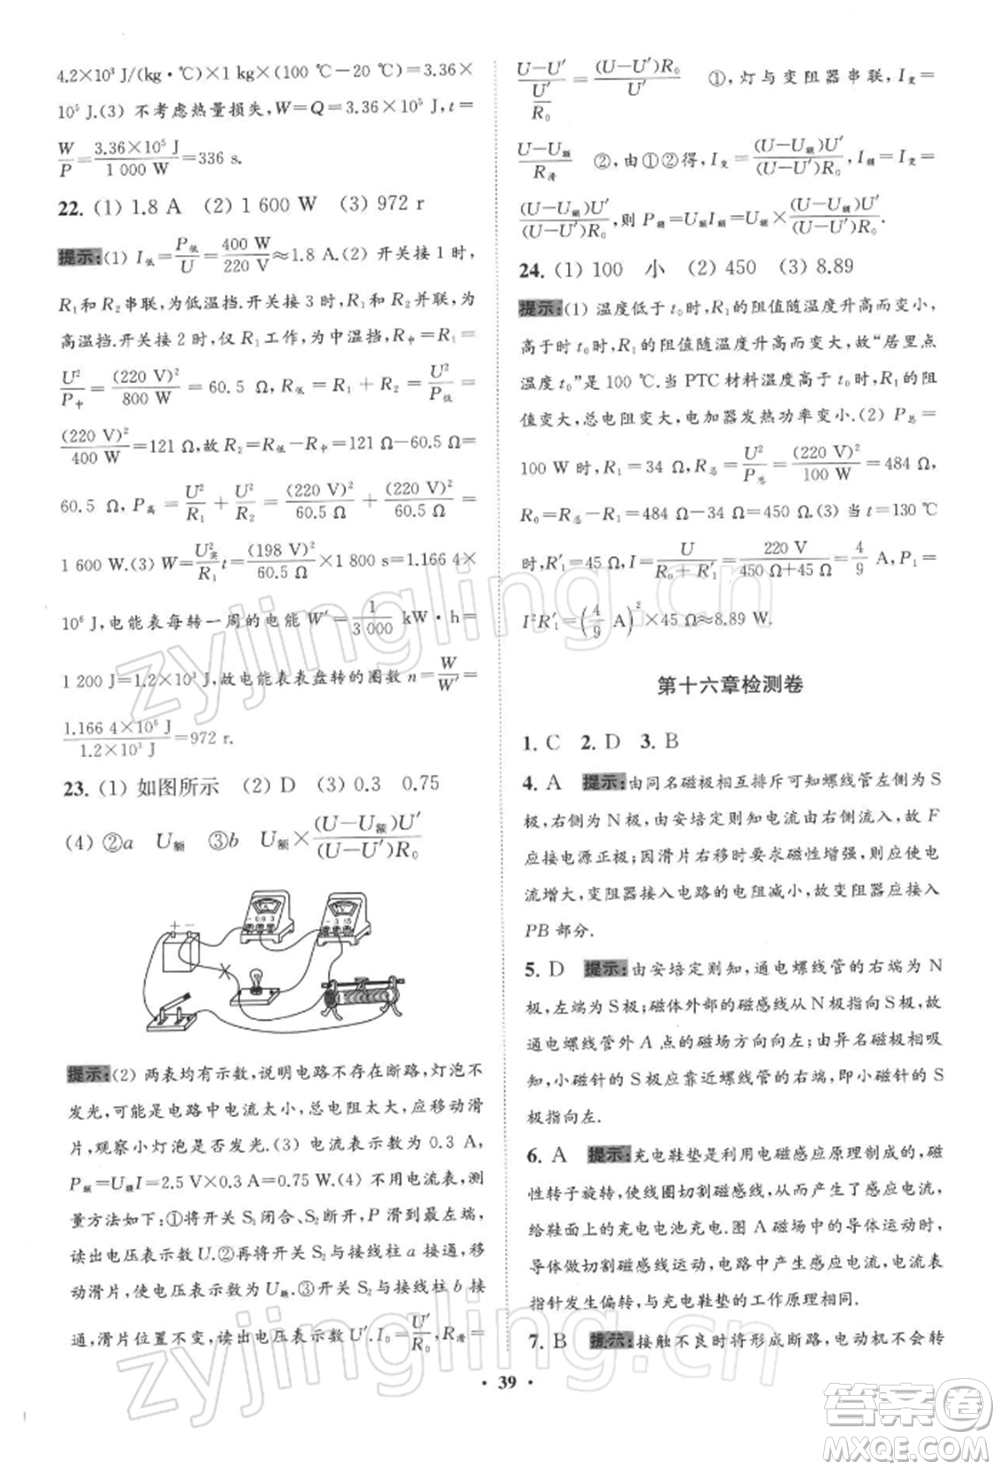 4.2×10³ J/(kg·℃)×1 kg×(100 ℃-20 ℃)=3.36×
10⁵ J.(3) 不考虑热量损失,W=Q=3.36×10⁵ J,t=
W/P=3.36×10⁵ J/1 000 W=336 s.
22. (1) 1.8 A (2) 1 600 W (3) 972 r
提示:(1) I低=P低/U=400 W/220 V≈1.8 A.(2) 开关接 1 时,
R₁和 R₂串联,为低温挡.开关接 3 时,R₁和 R₂并联,为
高温挡.开关接 2 时,仅 R₁工作,为中温挡;R中=
U²/P中=(220 V)²/800 W=60.5 Ω,R低=R₁+R₂=U²/P低=
(220 V)²/400 W=121 Ω,故 R₂=R低-R中=121 Ω-60.5 Ω=
60.5 Ω,P高=U²/R₁+U²/R₂=(220 V)²/60.5 Ω+(220 V)²/60.5 Ω=
1 600 W.(3) W=U实²/R₁t=(198 V)²/60.5 Ω×1 800 s=1.166 4×
10⁶ J,电能表每转一周的电能 W′=1/3 000 kW·h=
1 200 J=1.2×10³ J,故电能表表盘转的圈数 n=W/W′=
1.166 4×10⁶ J/1.2×10³ J=972 r.
23. (1) 如图所示 (2) D (3) 0.3 0.75
(4) ②a U额 ③b U额×(U-U额)U′/(U-U′)R₀
提示:(2) 两表均有示数,说明电路不存在断路,灯泡不
发光,可能是电路中电流太小,总电阻太大,应移动滑
片,观察小灯泡是否发光.(3) 电流表示数为 0.3 A,
P额=U额I=2.5 V×0.3 A=0.75 W.(4) 不用电流表,测
量方法如下:①将开关 S₁闭合,S₂断开,P 滑到最右端,
读出电压表示数 U.②再将开关 S₂与接线柱 a 接通,
移动滑片,使电压表示数为 U-U额;③开关 S₂与接线柱 b 接
通,滑片位置不变,读出电压表示数 U′.I₀=U′/R₀,R滑=
U-U′/U′/R₀=(U-U′)R₀/U′ ①,灯与变阻器串联,I变=
U-U额/R滑 ②,由①②得,I变=(U-U额)U′/(U-U′)R₀,I额=I变=
(U-U额)U′/(U-U′)R₀,则 P额=U额I额=U额×(U-U额)U′/(U-U′)R₀.
24. (1) 100 小 (2) 450 (3) 8.89
提示:(1) 温度低于 t₀时,R₁的阻值随温度升高而变小,
高于时 t₀时,R₁的阻值随温度升高而变大,故“居里点
温度 t₀”是 100 ℃.当 PTC 材料温度高于 t₀时,R₁的阻
值变大,总电阻变大,电加器发热功率变小.(2) P总=
100 W时,R₁=34 Ω,R总=U²/P总=(220 V)²/100 W=484 Ω,
R₀=R总-R₁=484 Ω-34 Ω=450 Ω.(3) 当 t=130 ℃
时,R′₁=45 Ω,I=U/R₀+R′₁=220 V/450 Ω+45 Ω=4/9 A,P₁=
I²R′₁=(4/9 A)²×45 Ω≈8.89 W.
第十六章检测卷
1. C 2. D 3. B
4. A 提示:由同名磁极相互排斥可知螺线管左侧为 S
极,右侧为 N 极,由安培定则知电流由右侧流入,故 F
应接电源正极;因滑片右移时要磁性增强,则应使电
流增大,变阻器接入电路的电阻减小,故变阻器应接入
PB 部分.
5. D 提示:由安培定则知,通电螺线管的右端为 N
极,左端为 S 极;磁体外部的磁感线从 N极到 S极,故
通电螺线管外 A 点的磁场方向向左;由异名磁极相吸
知,小磁针的 S极应靠近螺线管的右端,即小磁针的 S
极指向左.
6. A 提示:充电鞋垫是利用电磁感应原理制成的,磁
性转子旋转,使线圈切割磁感线,产生感应电流,故能
给鞋面上的充电电池充电.图 A 磁场中的导体运动时,
导体做切割磁感线运动,产生感应电流,电路中电流表
指针发生偏转,与充电鞋垫的工作原理相同.
7. B 提示:接触不良时将形成断路,电动机不会转
· 39 ·
zyjingling.cn
zyjingling.cn
答案圈
MXQE.COM